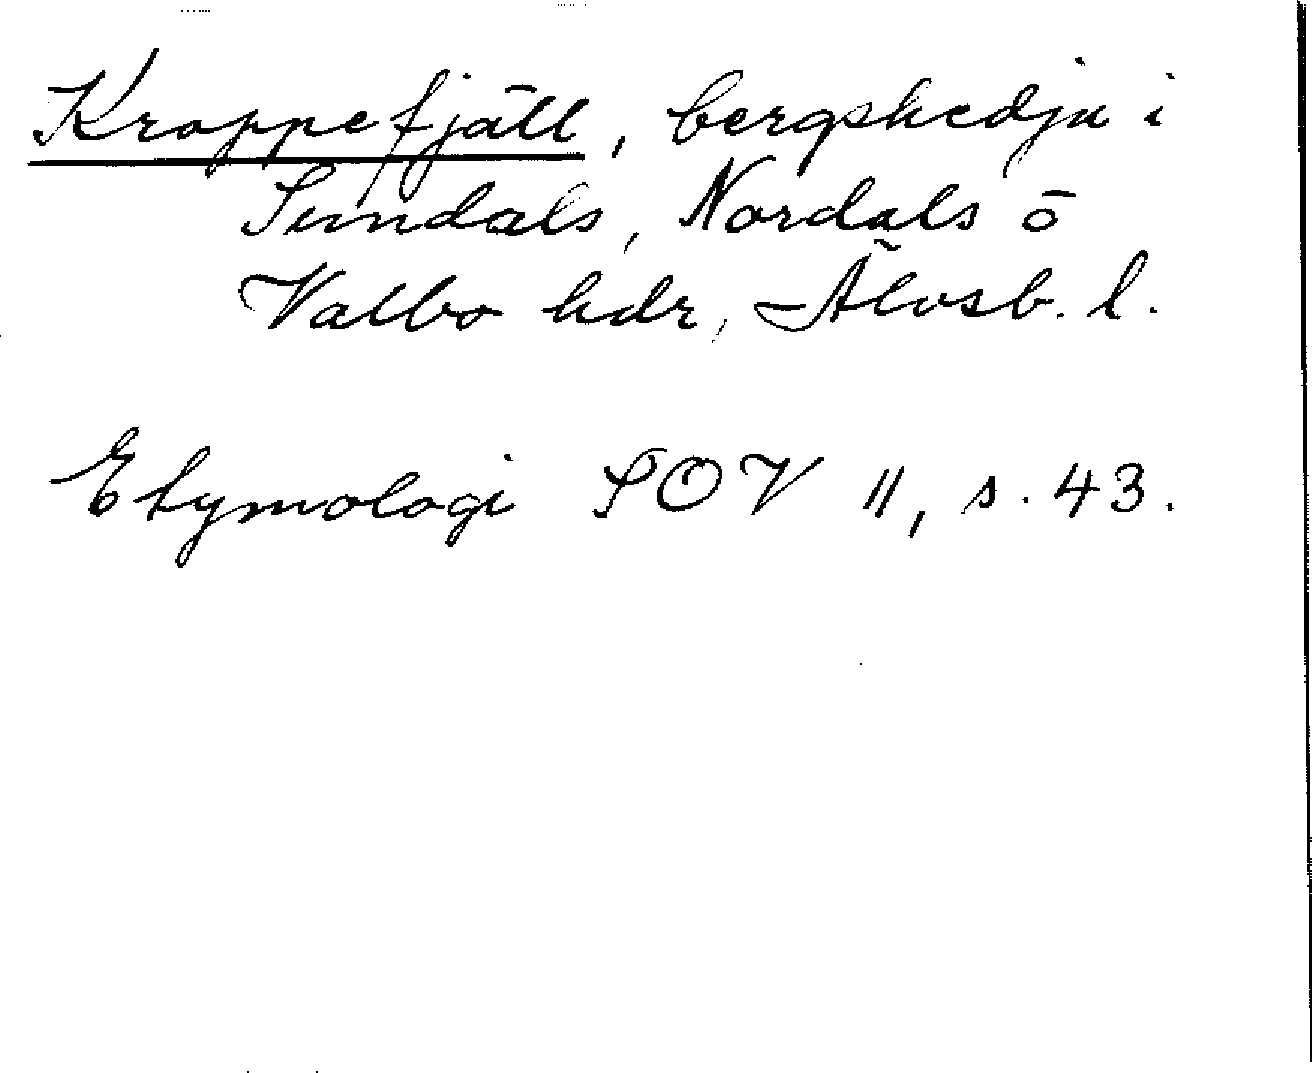 Kroppefjäll, bergskedja i
Sundals, Nordals ō
Valbo hdr, Älvsb. l.
Etymologi SOV 11, s. 43.